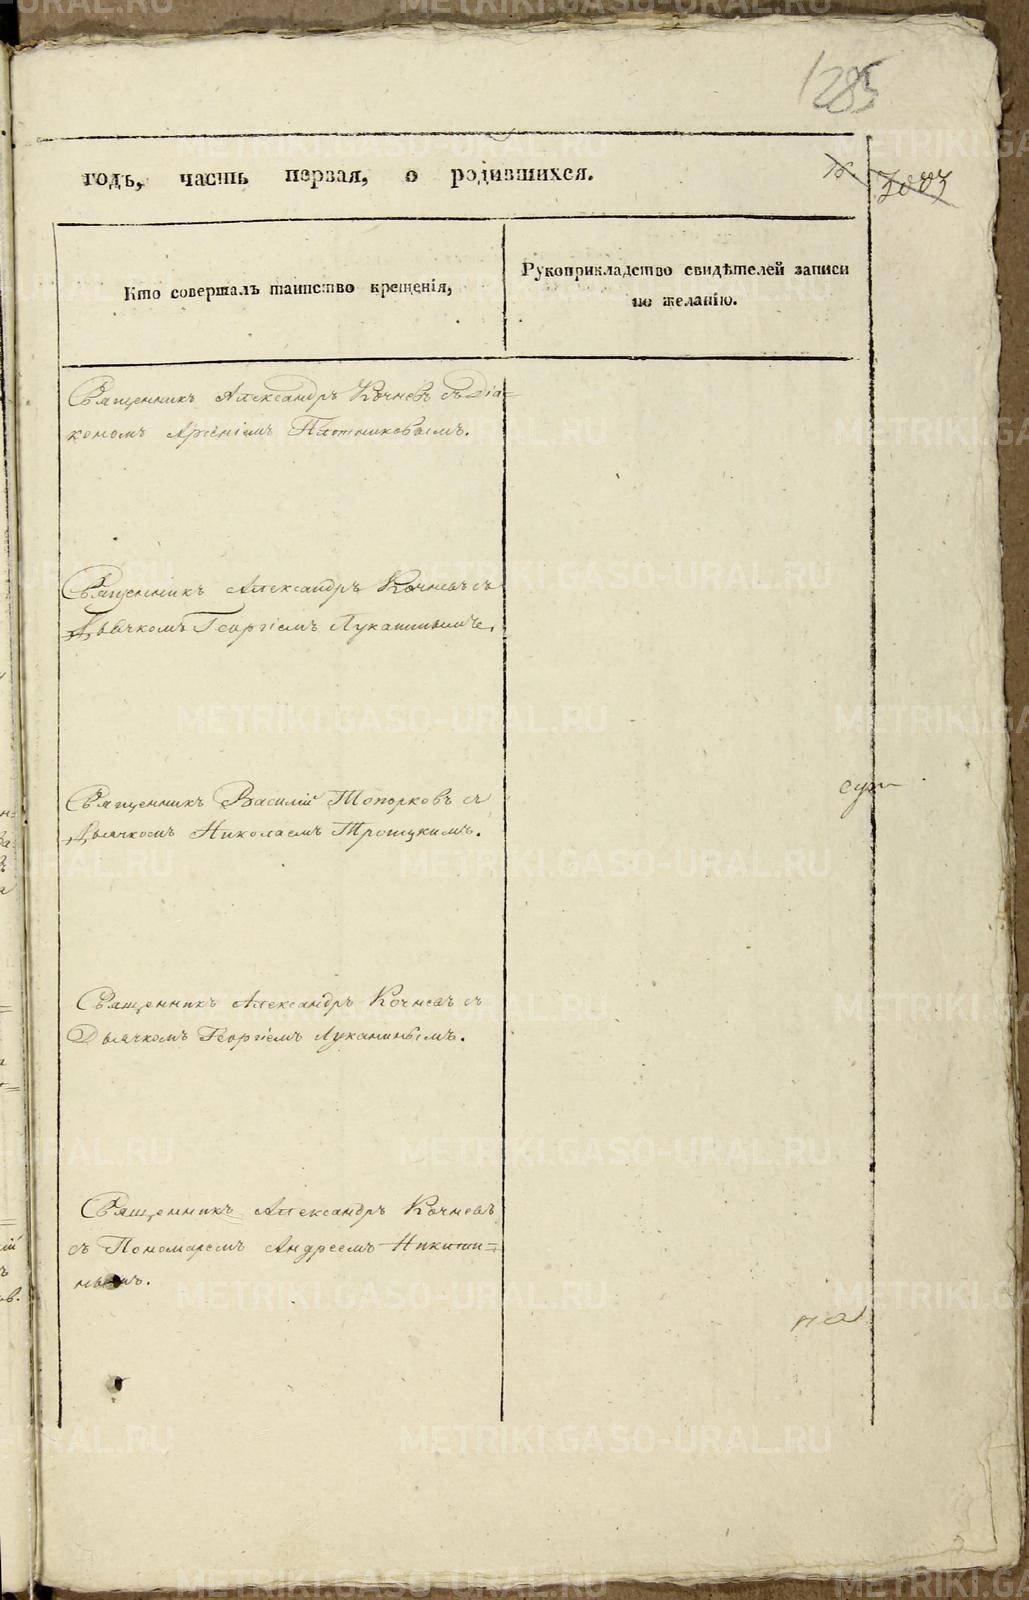 1285
годъ, часть первая, о родившихся.
Кто совершалъ таинство крещенія,
Рукоприкладство свидѣтелей записи
по желанію.
Священникъ Александръ Кочневъ съ Діа=
кономъ Арсеніемъ Плотниковымъ.
Священникъ Александръ Кочневъ съ
Дьячкомъ Георгіемъ
Священникъ Василій Топорковъ съ
Дьячкомъ Николаемъ Троицкимъ.
Священникъ Александръ Кочневъ съ
Дьячкомъ Георгіемъ Луканинымъ.
Священникъ Александръ Кочневъ
съ Пономаремъ Андреемъ Никити=
нымъ.
METRIKI.GASO-URAL.RU